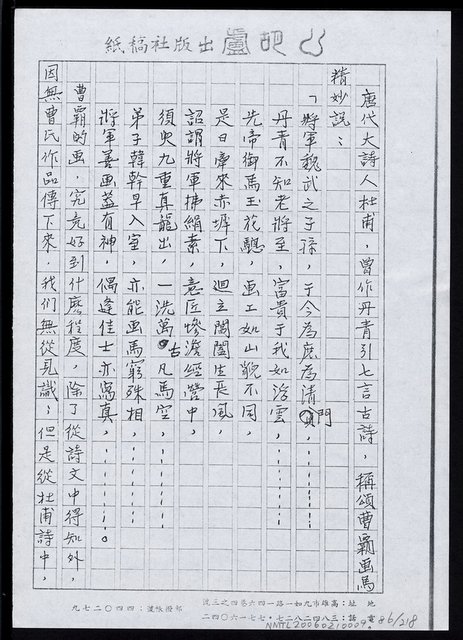 紙稿社版出盧葫
唐代大詩人杜甫，曾作丹青引七言古詩，稱頌曹霸画馬
精妙說：
「將軍魏武之子孫，于今為庶為清門
丹青不知老將至，富貴于我如浮雲，…………
先帝御馬玉花驄，画工如山貌不同，
是日牽來赤墀下，迴立閶闔生長風，
詔謂將軍拂絹素，意匠慘澹經營中，
須臾九重真龍出，一洗萬古凡馬空，…………
弟子韓幹早入室，亦能画馬窮殊相，…………
將軍善画蓋有神，偶逢佳士亦寫真，…………。
曹霸的画，究竟好到什麽程度，除了從詩文中得知外，
因無曹氏作品傳下來，我們無從見識；但是從杜甫詩中，
地　址：高雄市九如一路一四六巷四之三號
郵撥帳號：四四〇二七九
NMTL20060210009
86/218